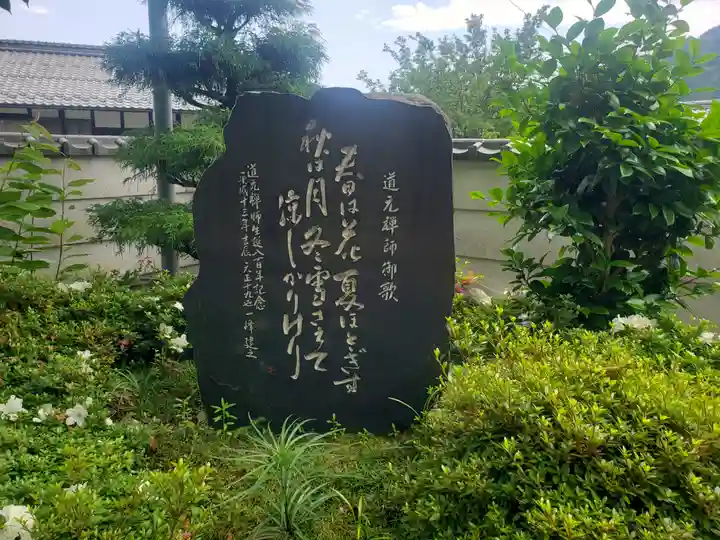 道元禅師御歌
春は花夏ほとぎす
秋は月冬雪さえて
涼しかりけり
道元禅師生誕八百年記念
平成十二年
建之